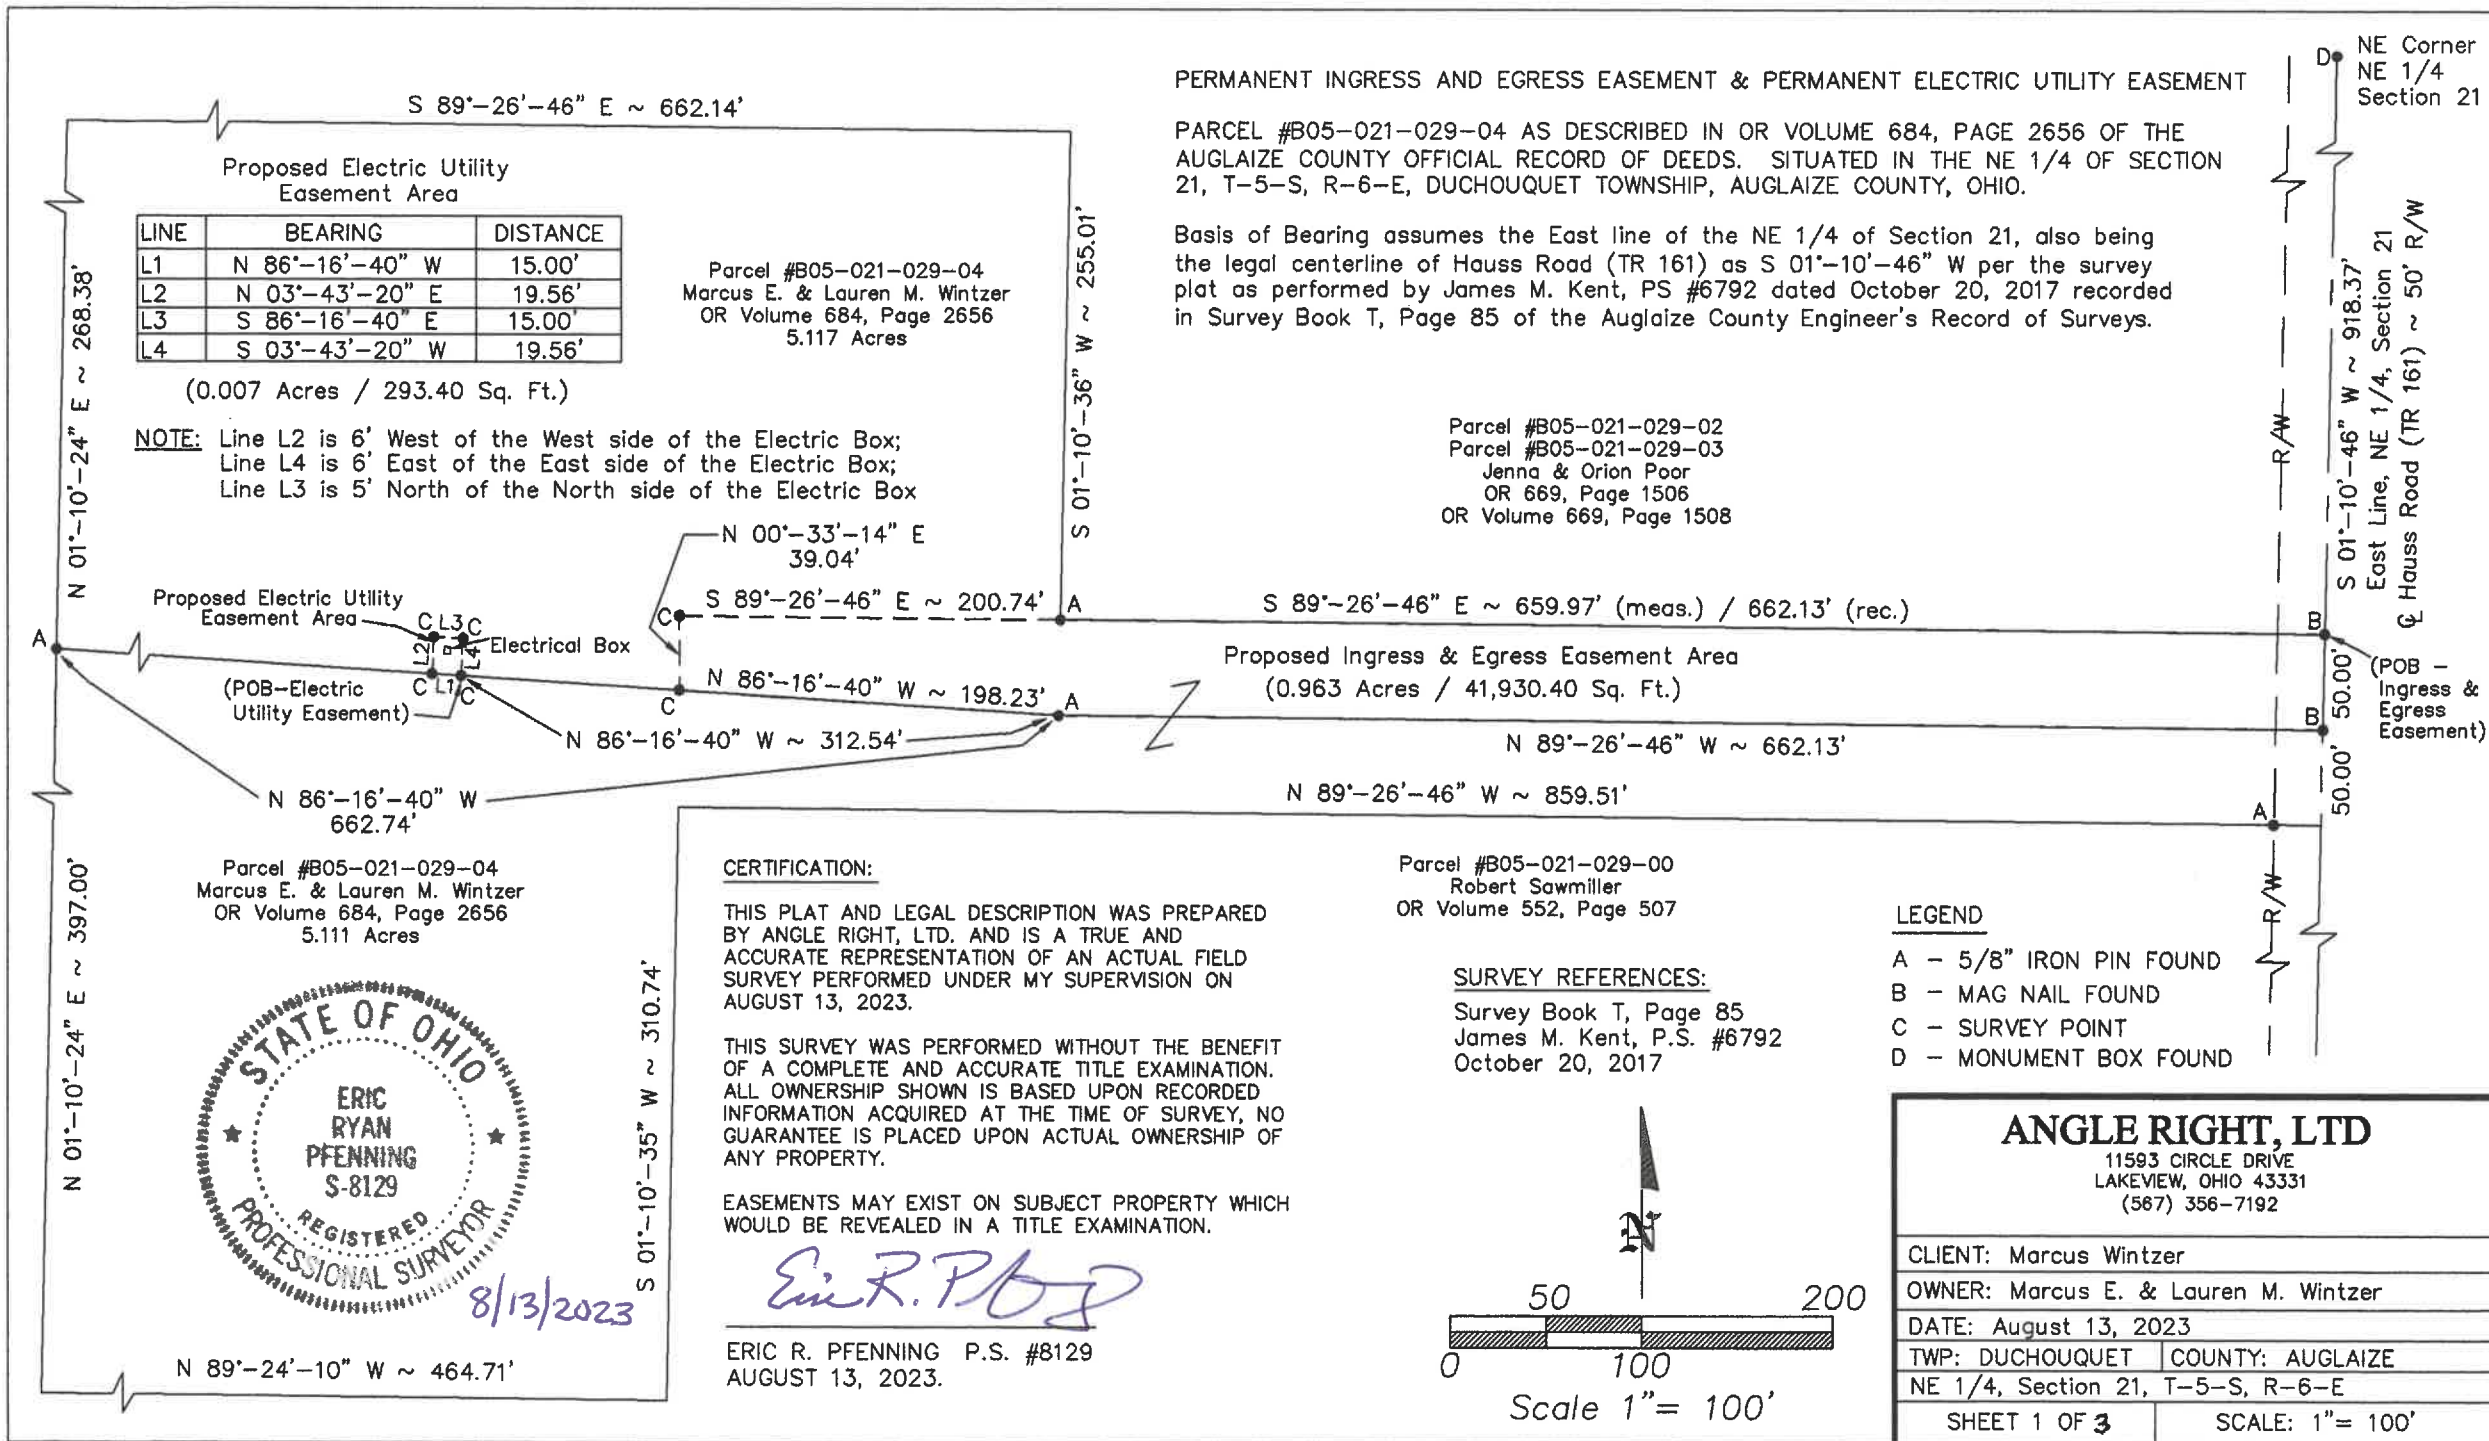 PERMANENT INGRESS AND EGRESS EASEMENT & PERMANENT ELECTRIC UTILITY EASEMENT
PARCEL #B05-021-029-04 AS DESCRIBED IN OR VOLUME 684, PAGE 2656 OF THE
AUGLAIZE COUNTY OFFICIAL RECORD OF DEEDS. SITUATED IN THE NE 1/4 OF SECTION
21, T-5-S, R-6-E, DUCHOUQUET TOWNSHIP, AUGLAIZE COUNTY, OHIO.
Basis of Bearing assumes the East line of the NE 1/4 of Section 21, also being
the legal centerline of Hauss Road (TR 161) as S 01°-10'-46" W per the survey
plat as performed by James M. Kent, PS #6792 dated October 20, 2017 recorded
in Survey Book T, Page 85 of the Auglaize County Engineer's Record of Surveys.
D
NE Corner
NE 1/4
Section 21
S 89°-26'-46" E ~ 662.14'
Proposed Electric Utility
Easement Area
LINE BEARING DISTANCE
L1 N 86°-16'-40" W 15.00'
L2 N 03°-43'-20" E 19.56'
L3 S 86°-16'-40" E 15.00'
L4 S 03°-43'-20" W 19.56'
(0.007 Acres / 293.40 Sq. Ft.)
NOTE: Line L2 is 6' West of the West side of the Electric Box;
Line L4 is 6' East of the East side of the Electric Box;
Line L3 is 5' North of the North side of the Electric Box
Parcel #B05-021-029-04
Marcus E. & Lauren M. Wintzer
OR Volume 684, Page 2656
5.117 Acres
N 01°-10'-24" E ~ 268.38'
S 01°-10'-36" W ~ 255.01'
Parcel #B05-021-029-02
Parcel #B05-021-029-03
Jenna & Orion Poor
OR 669, Page 1506
OR Volume 669, Page 1508
R/W
S 01°-10'-46" W ~ 918.37'
East Line, NE 1/4, Section 21
℄ Hauss Road (TR 161) ~ 50' R/W
N 00°-33'-14" E
39.04'
Proposed Electric Utility
Easement Area
C L3 C
L2
L4
Electrical Box
C L1 C
(POB-Electric
Utility Easement)
A
C
S 89°-26'-46" E ~ 200.74'
A
S 89°-26'-46" E ~ 659.97' (meas.) / 662.13' (rec.)
B
Proposed Ingress & Egress Easement Area
(0.963 Acres / 41,930.40 Sq. Ft.)
(POB -
Ingress &
Egress
Easement)
50.00'
B
50.00'
C
N 86°-16'-40" W ~ 198.23'
A
N 86°-16'-40" W ~ 312.54'
N 89°-26'-46" W ~ 662.13'
N 86°-16'-40" W
662.74'
N 89°-26'-46" W ~ 859.51'
A
R/W
N 01°-10'-24" E ~ 397.00'
Parcel #B05-021-029-04
Marcus E. & Lauren M. Wintzer
OR Volume 684, Page 2656
5.111 Acres
STATE OF OHIO
ERIC
RYAN
PFENNING
S-8129
REGISTERED
PROFESSIONAL SURVEYOR
8/13/2023
S 01°-10'-35" W ~ 310.74'
N 89°-24'-10" W ~ 464.71'
CERTIFICATION:
THIS PLAT AND LEGAL DESCRIPTION WAS PREPARED
BY ANGLE RIGHT, LTD. AND IS A TRUE AND
ACCURATE REPRESENTATION OF AN ACTUAL FIELD
SURVEY PERFORMED UNDER MY SUPERVISION ON
AUGUST 13, 2023.
THIS SURVEY WAS PERFORMED WITHOUT THE BENEFIT
OF A COMPLETE AND ACCURATE TITLE EXAMINATION.
ALL OWNERSHIP SHOWN IS BASED UPON RECORDED
INFORMATION ACQUIRED AT THE TIME OF SURVEY, NO
GUARANTEE IS PLACED UPON ACTUAL OWNERSHIP OF
ANY PROPERTY.
EASEMENTS MAY EXIST ON SUBJECT PROPERTY WHICH
WOULD BE REVEALED IN A TITLE EXAMINATION.
ERIC R. PFENNING P.S. #8129
AUGUST 13, 2023.
Parcel #B05-021-029-00
Robert Sawmiller
OR Volume 552, Page 507
SURVEY REFERENCES:
Survey Book T, Page 85
James M. Kent, P.S. #6792
October 20, 2017
N
50 200
0 100
Scale 1"= 100'
LEGEND
A - 5/8" IRON PIN FOUND
B - MAG NAIL FOUND
C - SURVEY POINT
D - MONUMENT BOX FOUND
ANGLE RIGHT, LTD
11593 CIRCLE DRIVE
LAKEVIEW, OHIO 43331
(567) 356-7192
CLIENT: Marcus Wintzer
OWNER: Marcus E. & Lauren M. Wintzer
DATE: August 13, 2023
TWP: DUCHOUQUET COUNTY: AUGLAIZE
NE 1/4, Section 21, T-5-S, R-6-E
SHEET 1 OF 3 SCALE: 1"= 100'